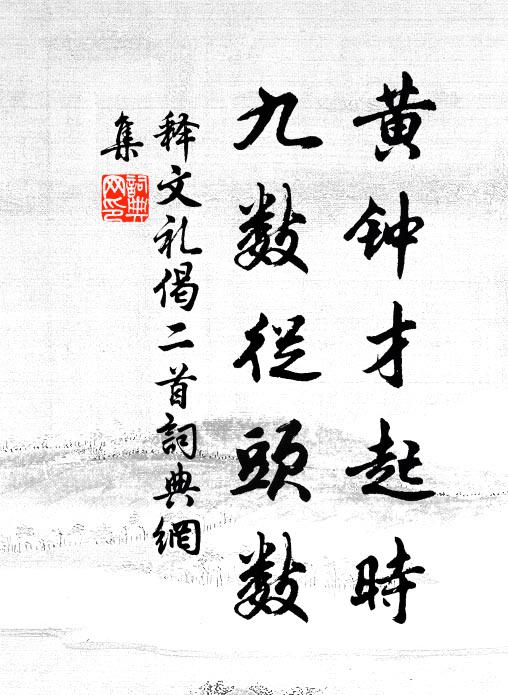 黄钟才起時
九数從頭数
释文礼偈二首詞典網
集
詞典网印